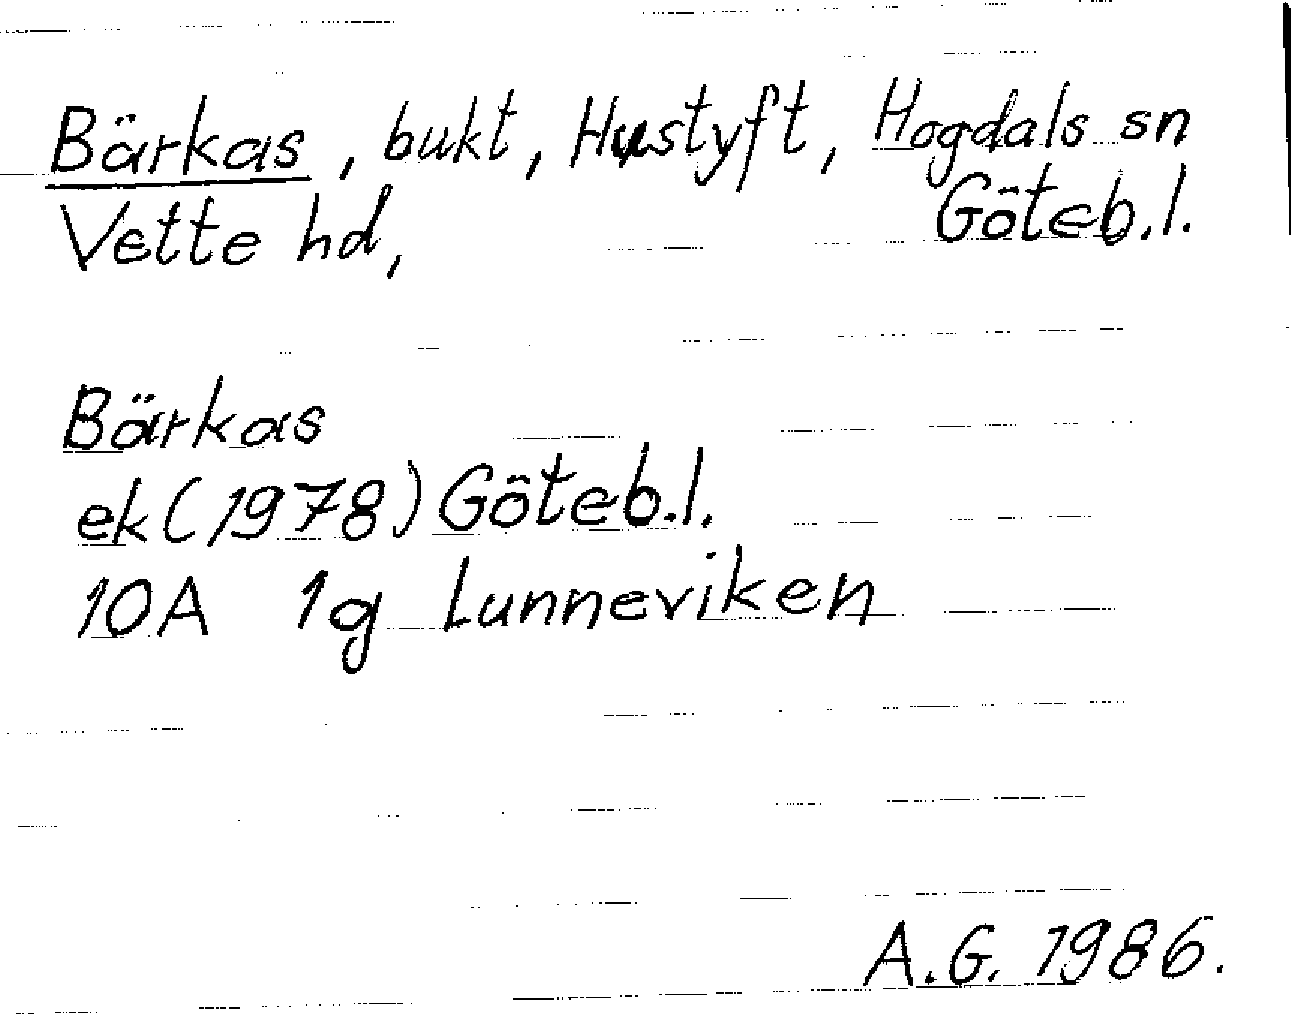 Bärkas, bukt, Hustyft, Hogdals sn
Vette hd, Göteb.l.
Bärkas
ek (1978) Göteb.l.
10A 1g Lunneviken
A.G. 1986.